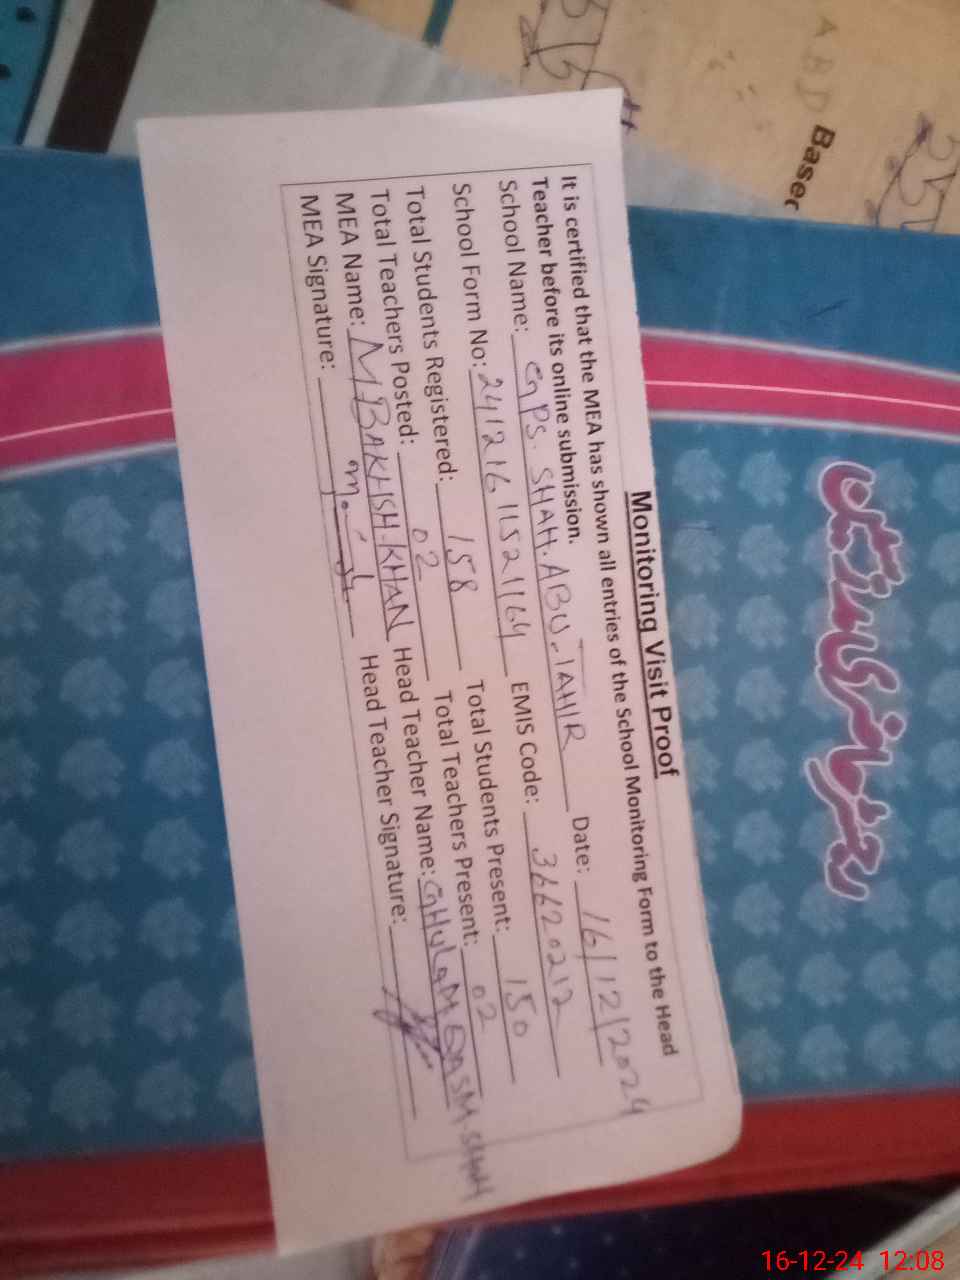 Monitoring Visit Proof
It is certified that the MEA has shown all entries of the School Monitoring Form to the Head
Teacher before its online submission.
School Name: GPS. SHAH. ABU. TAHIR Date: 16/12/2024
School Form No: 24121611521164 EMIS Code: 36620212
Total Students Registered: 158 Total Students Present: 150
Total Teachers Posted: 02 Total Teachers Present: 02
MEA Name: M BAKHSH KHAN Head Teacher Name: GHULAM QASM. SHAH
MEA Signature: Head Teacher Signature:
A B D Based
معاشرتی
16-12-24 12:08